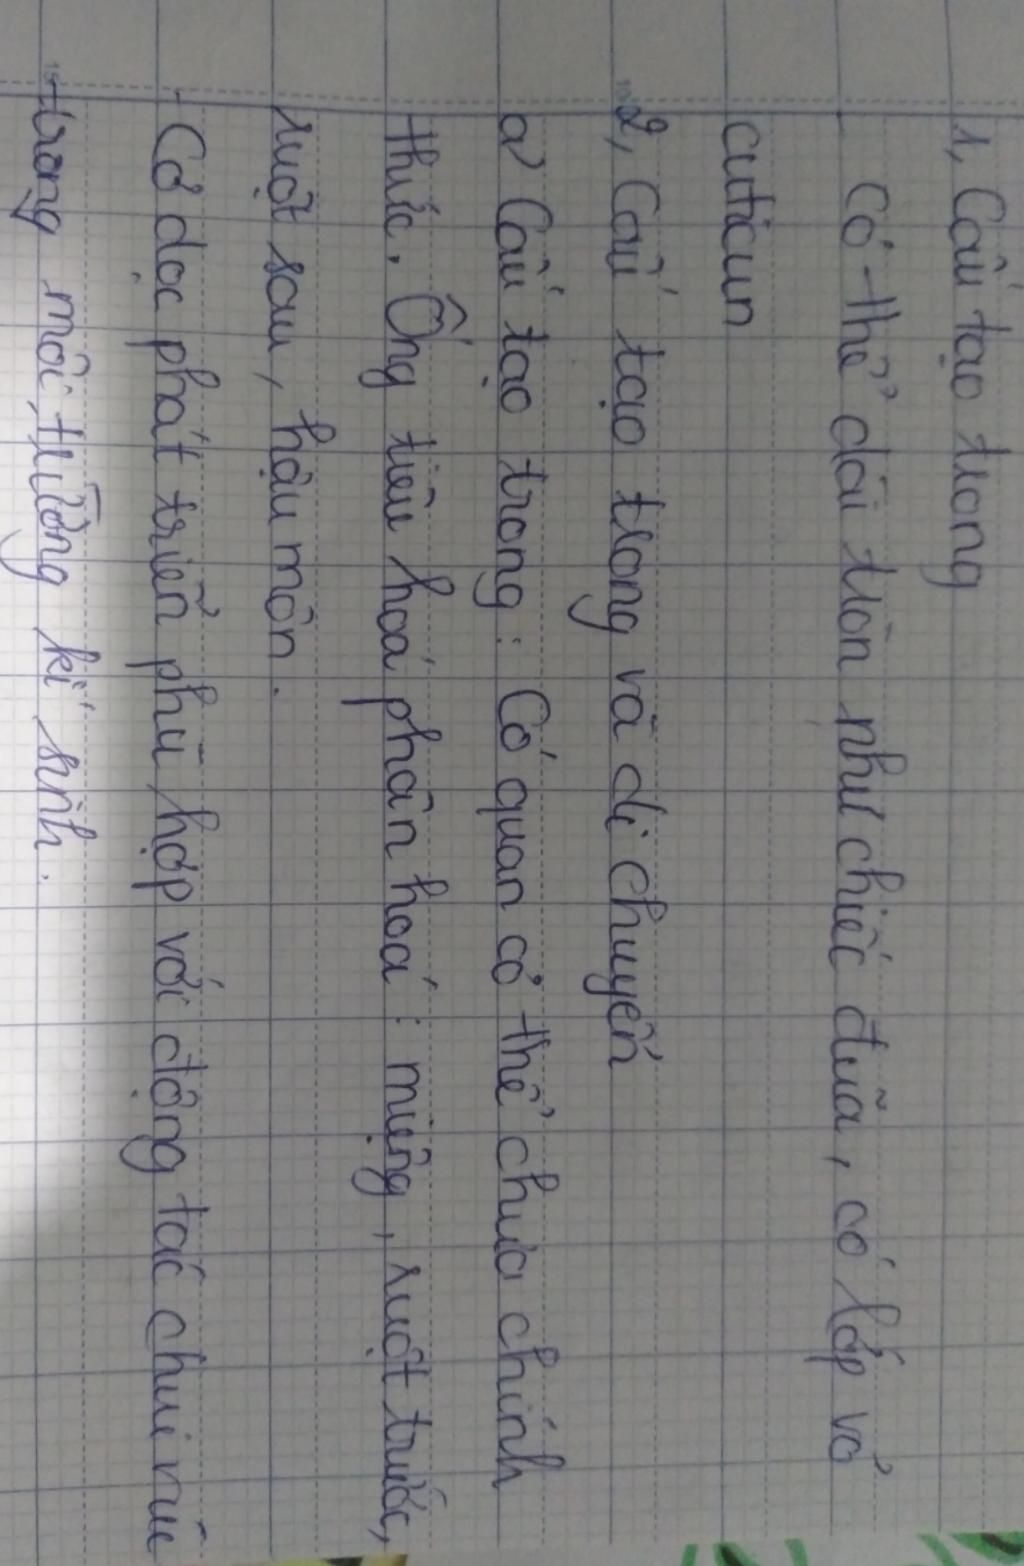 1, Cấu tạo trong
Cơ thể dài tròn như chiếc đũa, có lớp vỏ
cuticun
2, Cấu tạo trong và di chuyển
a, Cấu tạo trong: Có quan cơ thể chưa chính
thức. Ống tiêu hoá phân hoá: miệng, ruột trước,
ruột sau, hậu môn.
- Cơ dọc phát triển phù hợp với động tác chui rúc
trong môi trường kí sinh.